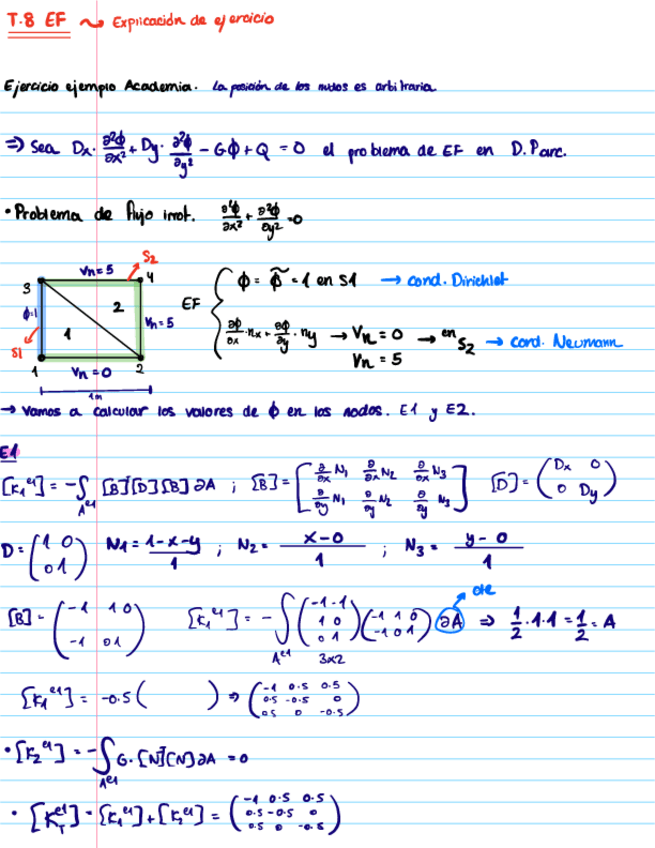 T.8 EF ~> Explicación de ejercicio
Ejercicio ejemplo Academia. La posición de los nudos es arbitraria
⇒ Sea Dx · ∂²ϕ/∂x² + Dy · ∂²ϕ/∂y² - Gϕ + Q = 0 el problema de EF en D. Parc.
• Problema de flujo irrot. ∂²ϕ/∂x² + ∂²ϕ/∂y² = 0
Vn = 5 S2
3 4
ϕ=1 1 2 Vn = 5
S1
1 Vn = 0 2
1m
EF { ϕ = ϕ̃ = 1 en S1 → cond. Dirichlet
∂ϕ/∂x · nx + ∂ϕ/∂y · ny → Vn = 0 → en S2 → cond. Neumann
Vn = 5
→ Vamos a calcular los valores de ϕ en los nodos. E1 y E2.
E1
[K1^e1] = -∫A^e1 [B]^T [D] [B] ∂A ; [B] = [∂/∂x N1 ∂/∂x N2 ∂/∂x N3
∂/∂y N1 ∂/∂y N2 ∂/∂y N3] [D] = (Dx 0
0 Dy)
D = (1 0
0 1) N1 = 1-x-y/1 ; N2 = x-0/1 ; N3 = y-0/1
[B] = (-1 1 0
-1 0 1) [K1^e1] = -∫A^e1 (-1 -1
1 0
0 1) 3x2 (-1 1 0
-1 0 1) ∂A → de ⇒ 1/2 · 1 · 1 = 1/2 = A
[K1^e1] = -0.5 ( ) ⇒ (-1 0.5 0.5
0.5 -0.5 0
0.5 0 -0.5)
• [K2^e1] = -∫A^e1 G · [N]^T [N] ∂A = 0
• [KT^e1] = [K1^e1] + [K2^e1] = (-1 0.5 0.5
0.5 -0.5 0
0.5 0 -0.5)